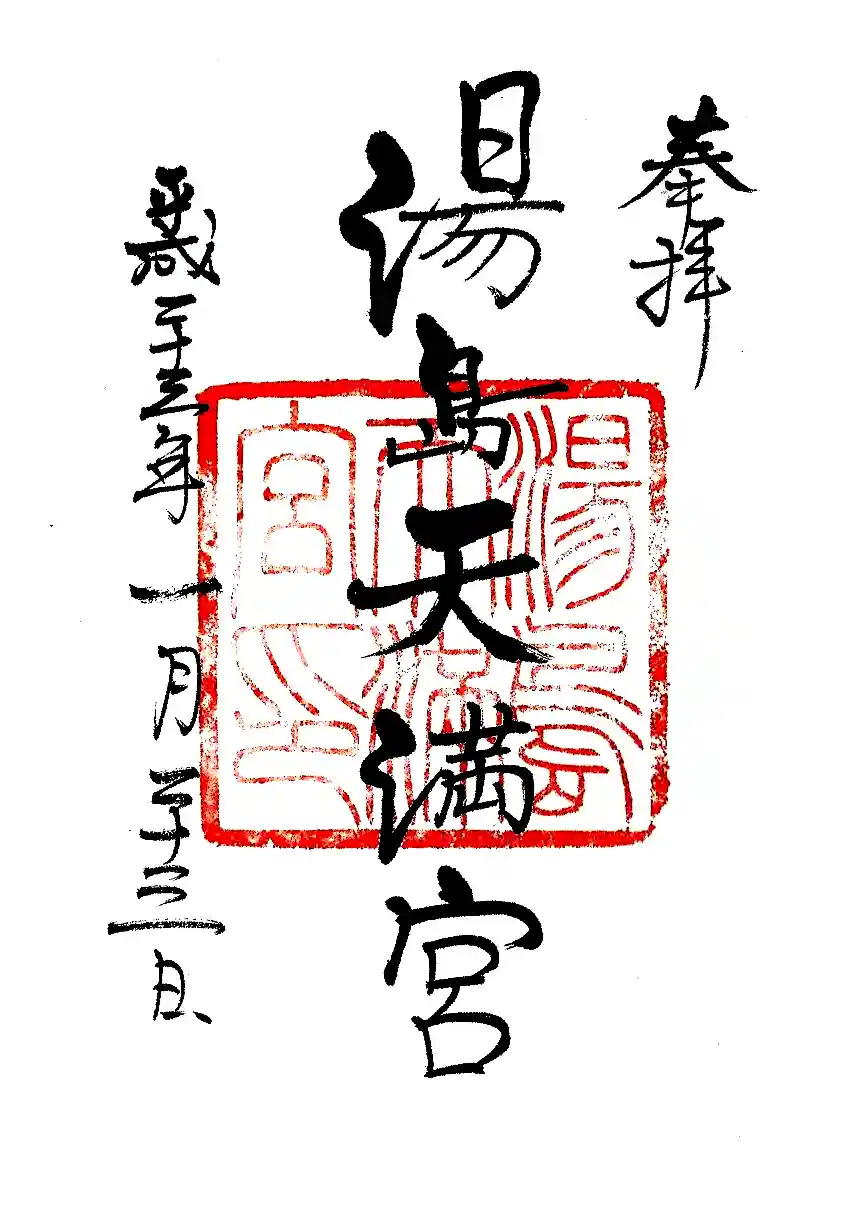 奉拝
湯島天満宮
平成二十三年一月二十三日
湯島
天満
宮印